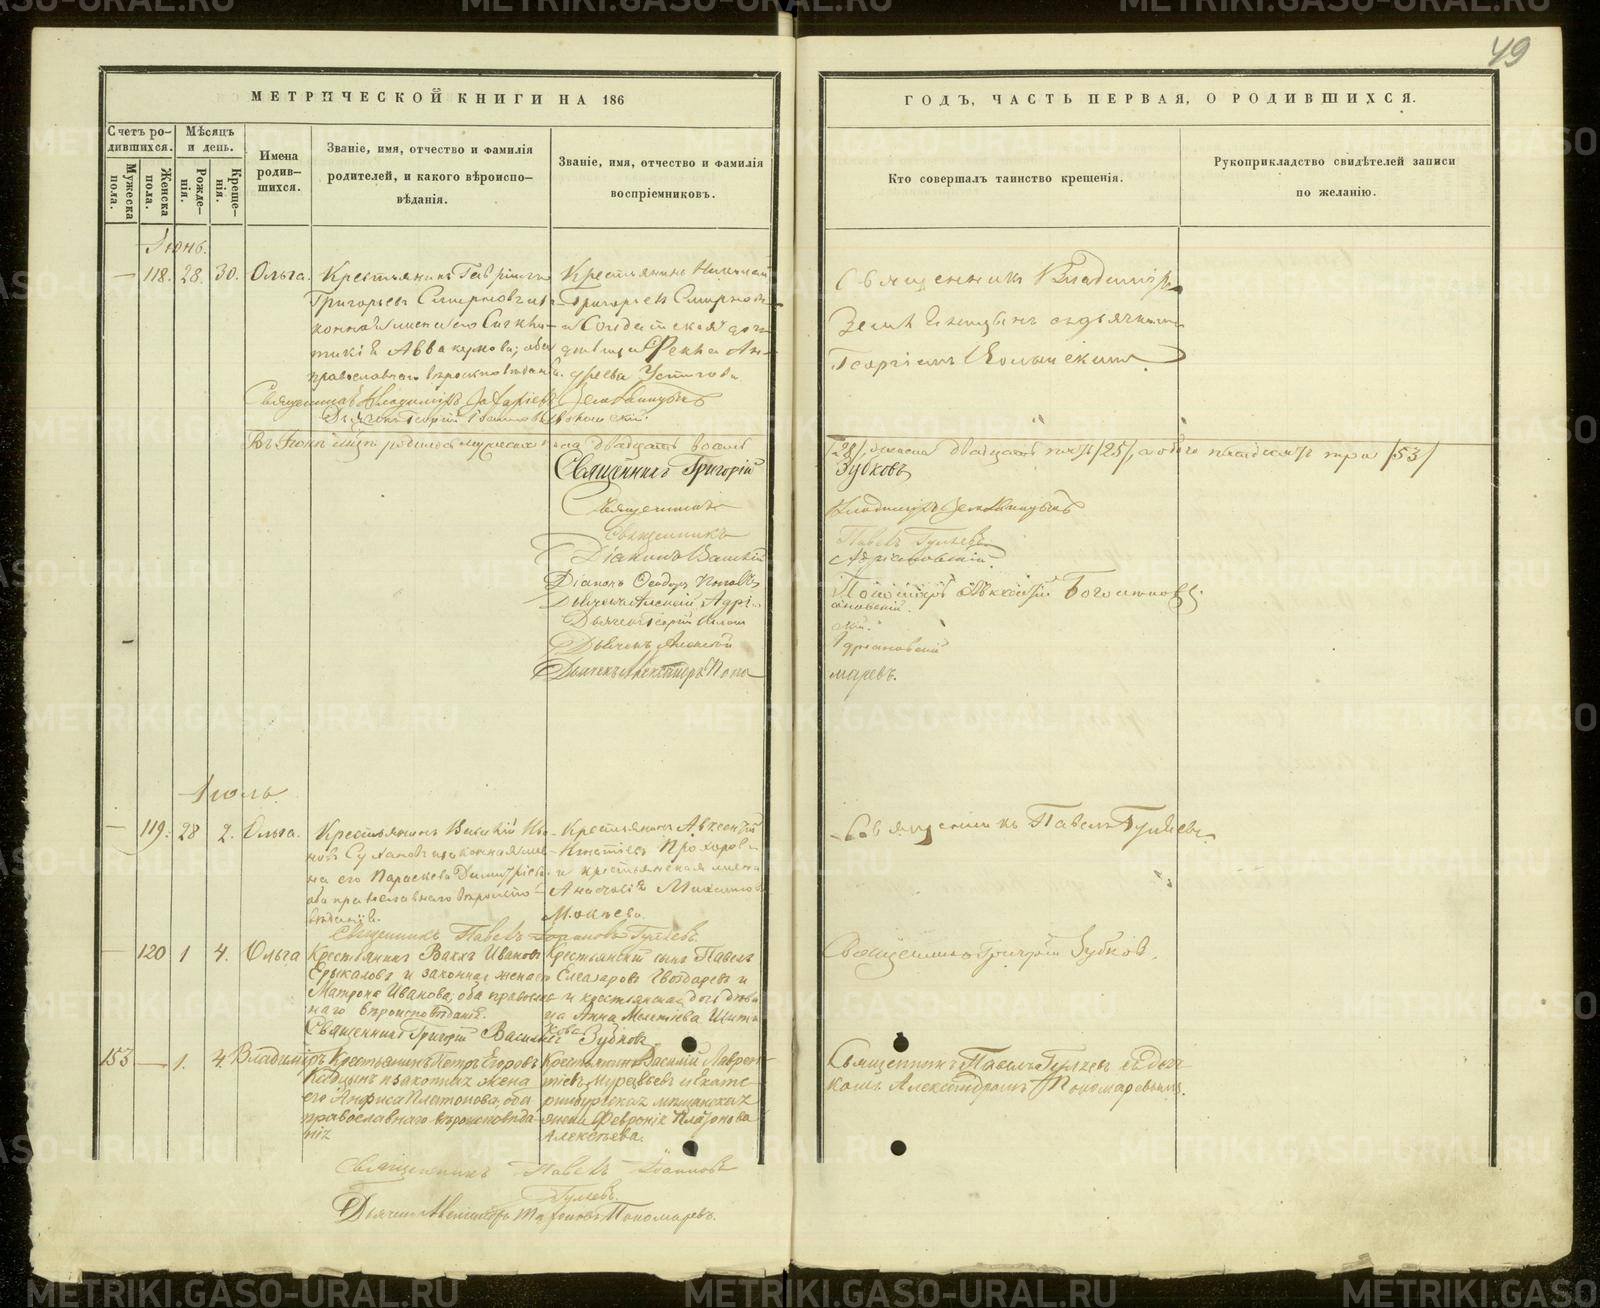 49
МЕТРИЧЕСКОЙ КНИГИ НА 186
ГОДЪ, ЧАСТЬ ПЕРВАЯ, О РОДИВШИХСЯ.
Счетъ ро-
дившихся.
Мужеска
пола.
Женска
пола.
Мѣсяцъ
и день.
Рожде-
нія.
Креще-
нія.
Имена
родив-
шихся.
Званіе, имя, отчество и фамилія
родителей, и какого вѣроиспо-
вѣданія.
Званіе, имя, отчество и фамилія
воспріемниковъ.
Кто совершалъ таинство крещенія.
Рукоприкладство свидѣтелей записи
по желанію.
Іюнь.
118. 28. 30. Ольга.
Крестьянинъ
Григорьевъ Смирновъ и
Аввакумова, оба
православнаго вѣроисповѣданія.
Крестьянинъ Николай
Григорьевъ Смирнов
и Солдатская доч
дѣвица Фекла Ан-
дреева Устюгова
Священникъ Владиміръ
Земляницынъ съ дьячкомъ
Георгіемъ
Священникъ Владиміръ Захаріевъ Земляницынъ
Дьячекъ Георгій
Въ Іюнѣ мѣсяцѣ родилось мужеска по- ла двадцать восемь /28/, женска двадцать пять /25/, а обоего пятьдесятъ три /53/
Священникъ Григорій Зубковъ
Священникъ Владиміръ Земляницынъ
Священникъ Павелъ Гуляевъ
Діаконъ Василій Адріановскій
Діаконъ Ѳеодоръ Попов
Пономарь Алексѣй
Дьячекъ Алексѣй Адрі-
ановскій
Дьячекъ Георгій
Дьячекъ Алексѣй
Адріановскій
Дьячекъ Александръ Поно
маревъ.
Іюль.
119. 28 2. Ольга.
Крестьянинъ Василій Ива
новъ Сухановъ и законная же
на его Параскева Димитріева
оба православнаго вѣроиспо-
вѣданія.
Крестьянинъ Авксентій
Игнатіевъ Прохоров
и крестьянская жена
Анастасія
Мокѣева.
Священникъ Павелъ Гуляевъ
Священникъ Павелъ Іоанновъ Гуляевъ.
120 1 4. Ольга
Крестьянинъ Вакхъ Ивановъ
Ерыкаловъ и законная жена его
Матрона Иванова, оба православ
наго вѣроисповѣданія.
Крестьянскій сынъ Павелъ
Елеазаровъ Гвоздаревъ и
и крестьянская дочь дѣви
ца Анна Мелетіева Щит
кова
Священникъ Григорій Зубковъ.
Священникъ Григорій Васильевъ Зубковъ
153 — 1. 4. Владиміръ
Крестьянинъ Петръ Егоровъ
Кадцынъ и законная жена
его Анфиса Платонова, оба
православнаго вѣроисповѣда-
нія
Крестьянинъ Василій Лаврен
тіевъ Муравьевъ и Екате-
ринбургская мѣщанская
жена Февронія Платонова
Алексѣева.
Священникъ Павелъ Гуляевъ съ Дьяч-
комъ Александромъ Пономаревымъ.
Священникъ Павелъ Іоанновъ
Гуляевъ.
Дьячекъ Александръ Пономаревъ.
METRIKI.GASO-URAL.RU